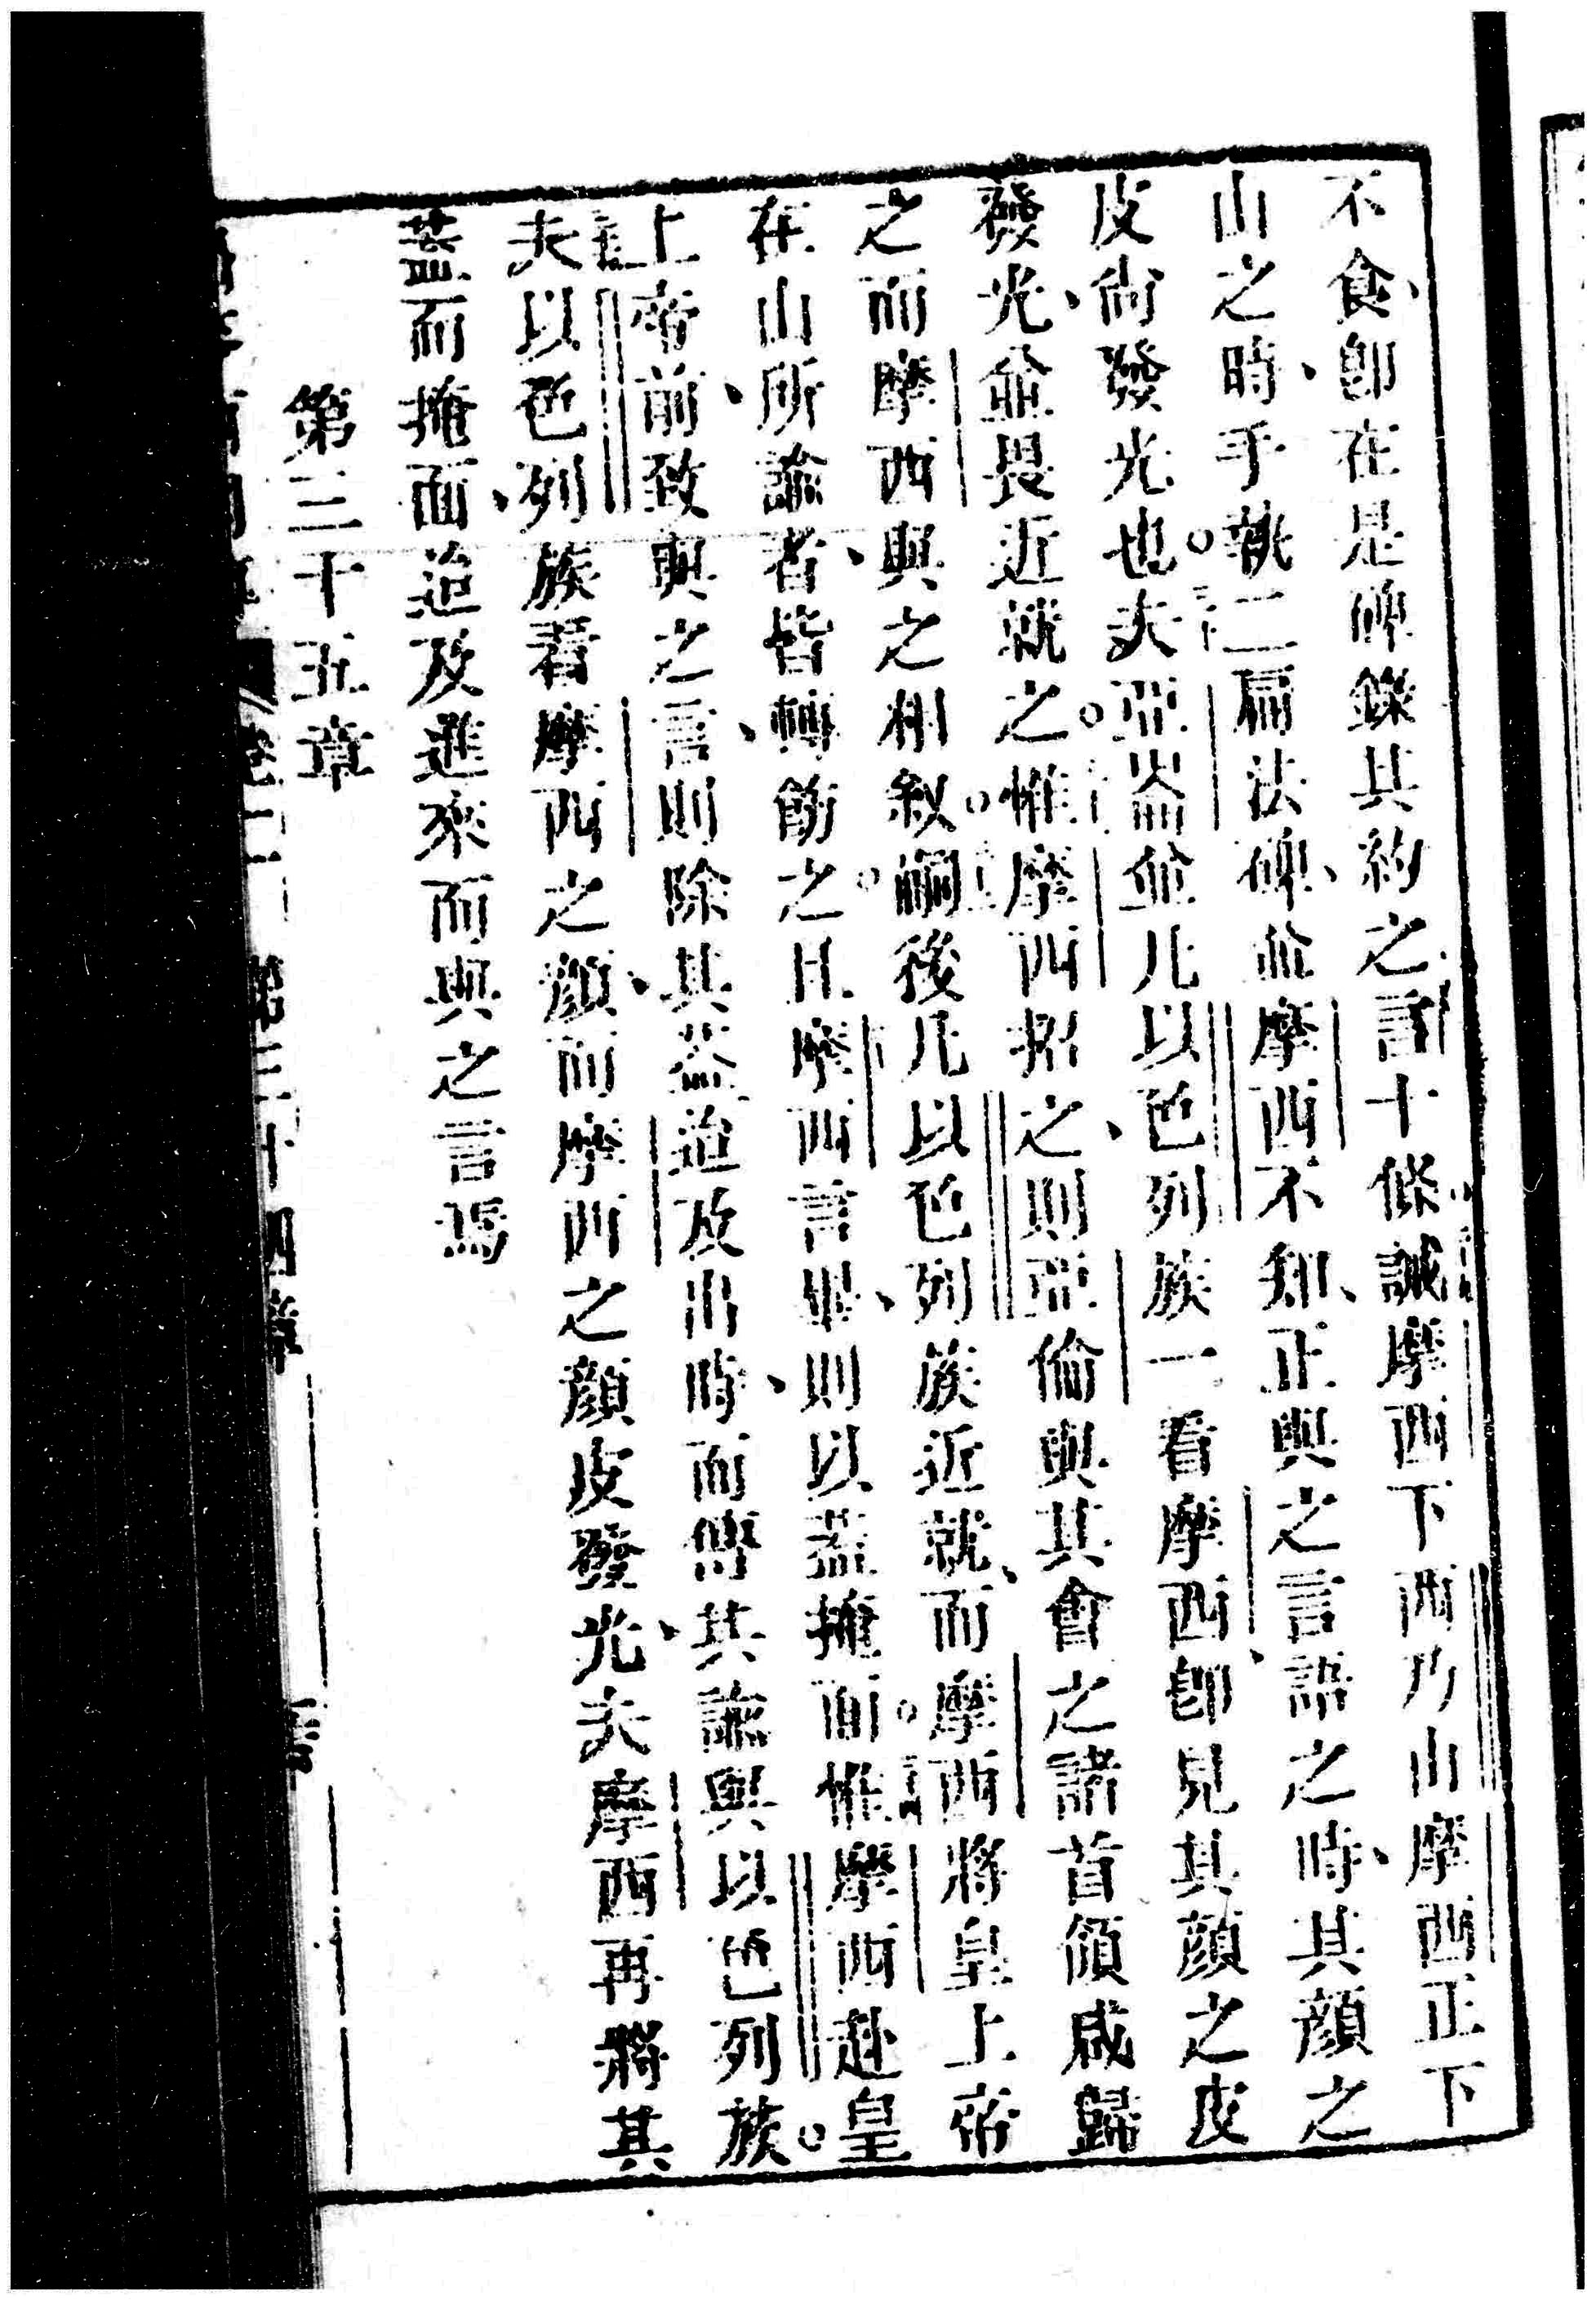 不食、卽在是碑鏍其約之言十條。誡摩西下西乃山摩西正下
山之時、手執二扁法碑、並摩西不知、正與之言語之時、其顏之
皮尚發光也。夫亞崙並凡以色列族一看摩西、卽見其顏之皮
發光、並畏近就之。惟摩西招之、則亞倫與其會之諸首領咸歸
之而摩西與之相敘。嗣後凡以色列族近就、而摩西將皇上帝
在山所諭者、皆轉飭之。且摩西言畢、則以蓋掩面。惟摩西赴皇
上帝前、致與之言、則除其蓋迨及出時、而傳其諭與以色列族。
夫以色列族看摩西之顏、而摩西之顏皮發光、夫摩西再將其
蓋而掩面、迨及進來而與之言焉
第三十五章
卷二 第三十四章